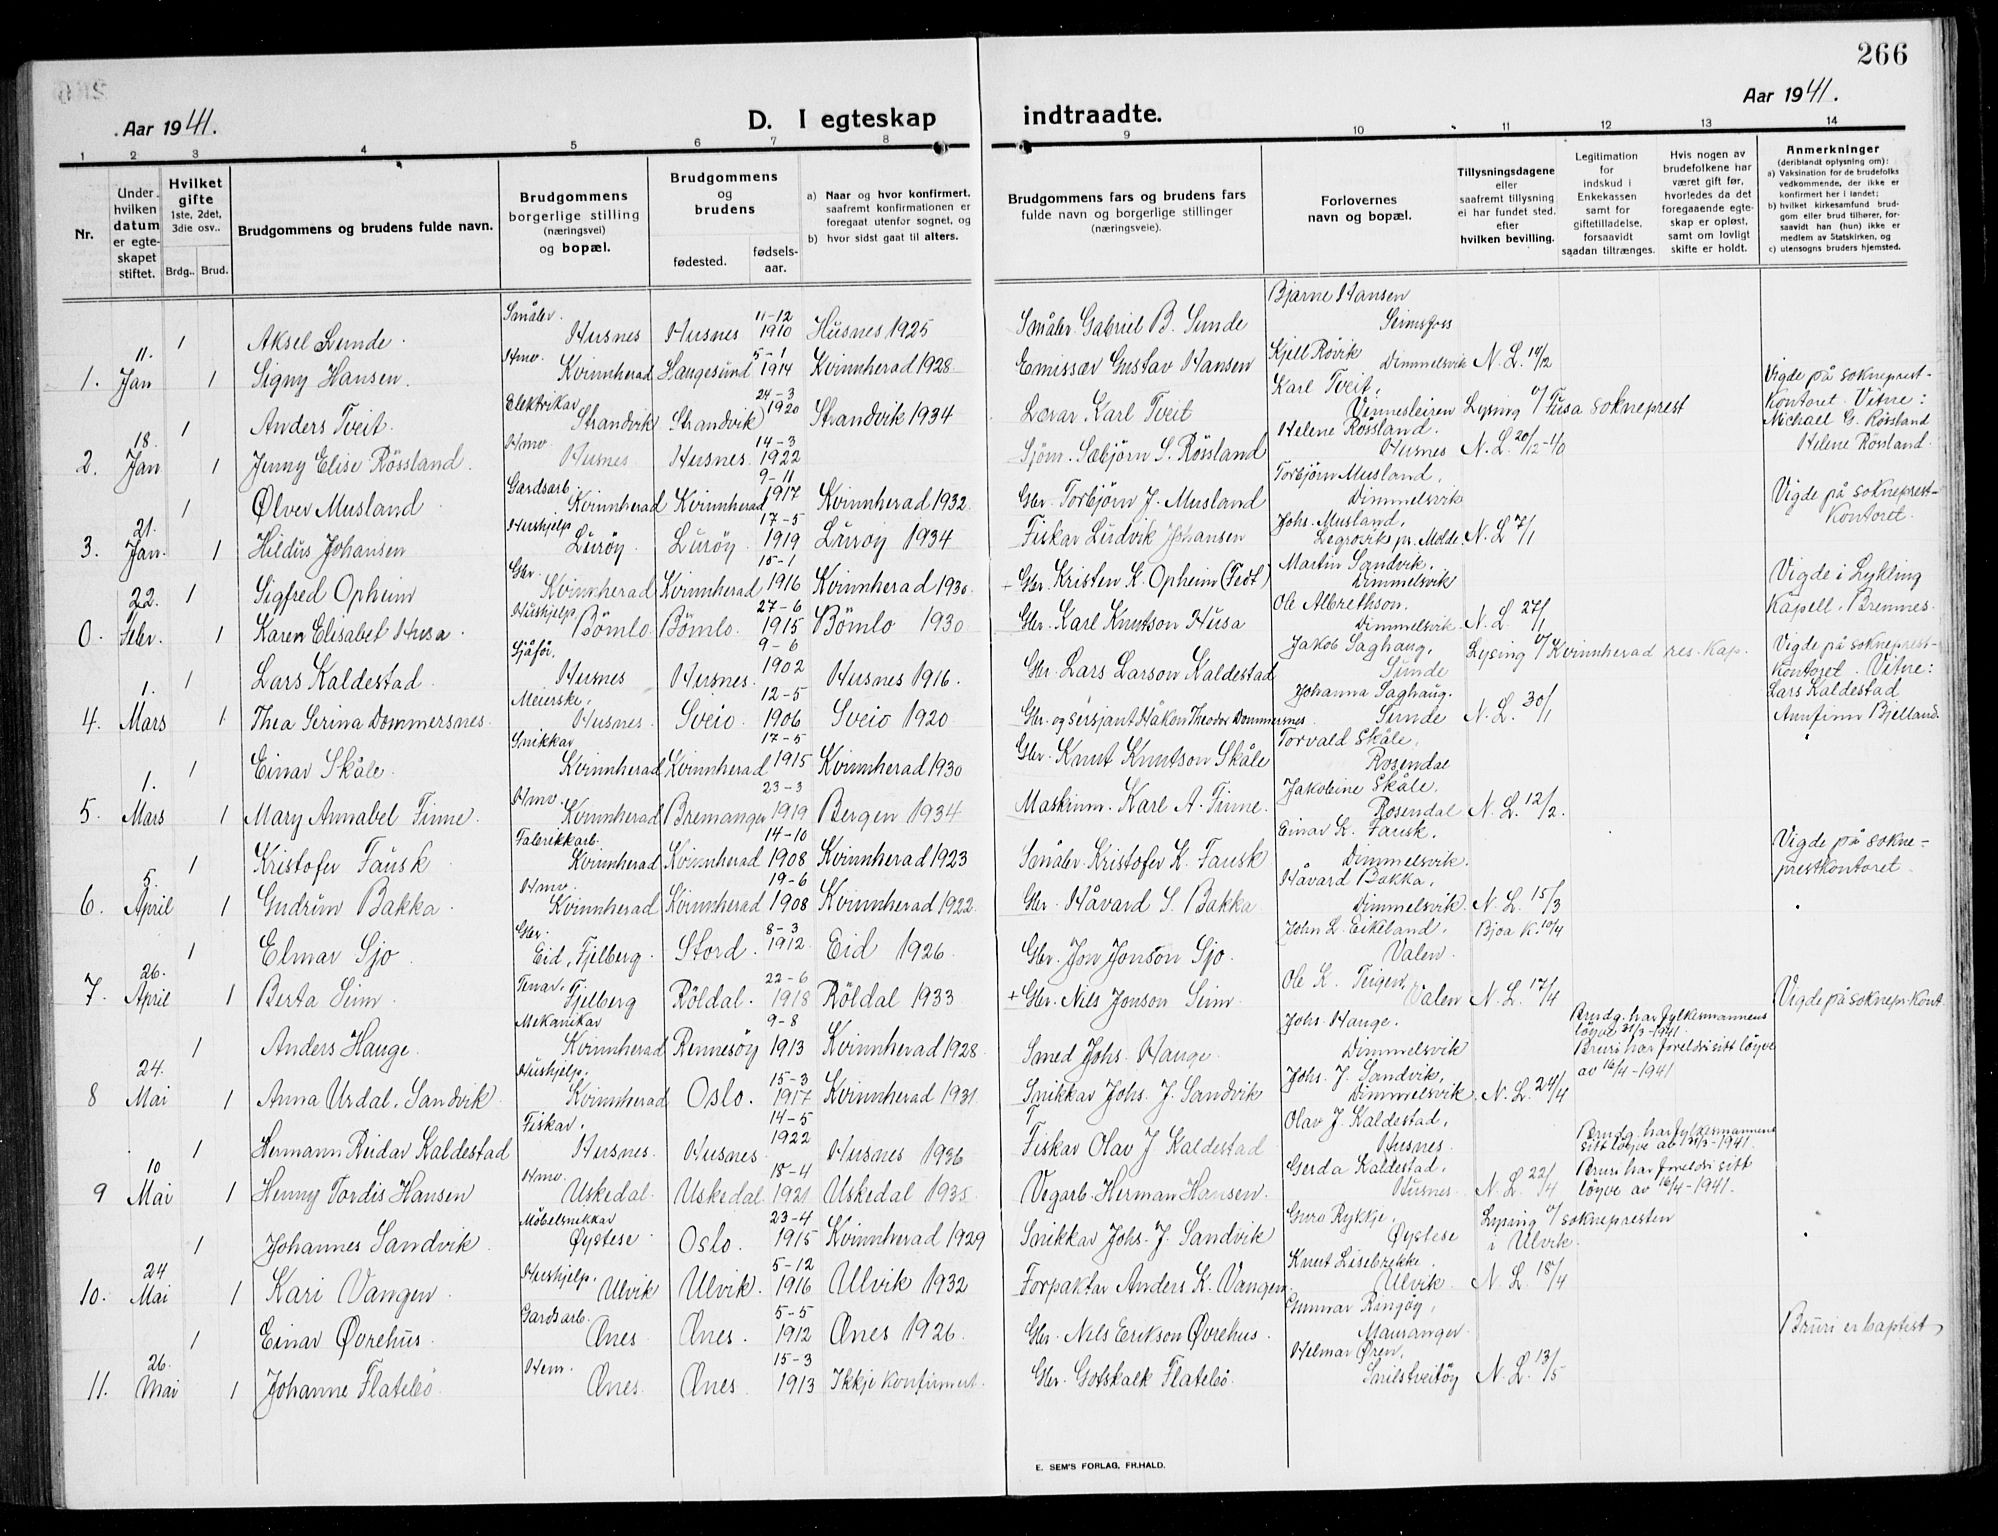 266
Aar 1941.
D. I egteskap indtraadte.
Aar 1941.
1 2 3 4 5 6 7 8 9 10 11 12 13 14
Nr.
Under hvilken datum er egteskapet stiftet.
Hvilket gifte 1ste, 2det, 3die osv..
Brdg.. Brud.
Brudgommens og brudens fulde navn.
Brudgommens borgerlige stilling (næringsvei) og bopæl.
Brudgommens og brudens
fødested. fødselsaar.
a) Naar og hvor konfirmert. saafremt konfirmationen er foregaat utenfor sognet, og
b) hvor sidst gaat til alters.
Brudgommens fars og brudens fars fulde navn og borgerlige stillinger (næringsveie).
Forlovernes navn og bopæl.
Tillysningsdagene eller saafremt tillysning ei har fundet sted. efter hvilken bevilling.
Legitimation for indskud i Enkekassen samt for giftetilladelse, forsaavidt saadan tiltrænges.
Hvis nogen av brudefolkene har været gift før, hvorledes da det foregaaende egteskap er opløst, samt om lovligt skifte er holdt.
Anmerkninger (deriblandt oplysning om):
a) Vaksination for de brudefolks vedkommende, der ikke er konfirmert her i landet;
b) hvilket kirkesamfund brudgom eller brud tilhører, forsaavidt han (hun) ikke er medlem av Statskirken, og
c) utensogns bruders hjemsted.
1 Aksel Sunde. Småbr. Husnes Husnes 11-12 1910 Husnes 1925 Småbr. Gabriel B. Sunde Bjarne Hansen Seimsfoss
1. 11. Jan 1 Signy Hansen. Hmv. Kvinnherad Haugesund 5-1 1914 Kvinnherad 1928. Emissær Gustav Hansen Kjell Røvik Dimmelsvik N. L. 19/12
1 Anders Tveit. Elektrikar Strandvik Strandvik 24-3 1920 Strandvik 1934 Lærar Karl Tveit Karl Tveit, Vinnesleiren Lysing v/ Fusa sokneprest Vigde på sokneprest-kontoret. Vitne: Michael G. Røssland Helene Røssland.
2. 18. Jan 1 Jenny Elise Røssland. Hmv Husnes Husnes. 14-3 1922 Sjøm. Sæbjörn S. Røssland Helene Røssland. Husnes N. L. 20/12-40
1 Ølver Musland Gardsarb. Kvinnherad Kvinnherad 9-11 1917 Kvinnherad 1932. Gbr. Torbjørn J. Musland Torbjørn Musland, Dimmelsvik Vigde på sokneprest-kontoret.
3. 21. Jan. 1 Hildus Johansen Hushjelp Lurøy. Lurøy. 17-5 1919 Lurøy 1934 Fiskar Ludvik Johansen Johs. Musland, Legrovik pr. Molde. N. L. 7/1
1 Sigfred Opheim Gbr. Kvinnherad Kvinnherad 15-1 1916 Kvinnherad 1930. + Gbr. Kristen K. Opheim (Fedt) Martin Sandvik, Dimmelsvik Vigde i Lykling Kapell. Bremnes.
0. 22. Febr. 1 Karen Elisabet Husa. Hushjelp. Bömlo. Bömlo. 27-6 1915 Bömlo 1930 Gbr. Karl Knutson Husa Ole Albrethson. Dimmelsvik. N. L. 27/1
1 Lars Kaldestad. Sjåfør. Husnes Husnes. 9-6 1902 Husnes 1916. Gbr. Lars Larson Kaldestad Jakob Saghaug. Sunde Lysing v/ Kvinnherad res. Kap. Vigde på sokneprest-kontoret. Vitne: Lars Kaldestad Annfinn Bjelland.
4. 1. Mars 1 Thea Serina Dommersnes. Meierske, Husnes. Sveio. 12-5 1906 Sveio 1920 Gbr. og sersjant Håkon Theodor Dommersnes Johanna Saghaug. Sunde N. L. 30/1
1 Einar Skåle. Snikkar Kvinnherad Kvinnherad 17-5 1915 Kvinnherad 1930 Gbr. Knut Knutson Skåle Torvald Skåle, Rosendal
5. 1. Mars 1 Mary Annabel Finne. Hmv. Kvinnherad Bremanger 23-3 1919 Bergen 1934 Maskinm. Karl A. Finne. Jakobine Skåle. Rosendal N. L. 12/2.
1 Kristofer Fausk Fabrikkarb. Kvinnherad Kvinnherad 14-10 1908 Kvinnherad 1923 Småbr. Kristofer K. Fausk Einar K. Fausk. Dimmelsvik. Vigde på sokne-prestkontoret.
6. 5. April 1 Gudrun Bakka. Hmv. Kvinnherad Kvinnherad 19-6 1908 Kvinnherad 1922. Gbr. Håvard S. Bakka Håvard Bakka. Dimmelsvik. N. L. 15/3
1 Elmar Sjo. Gbr. Eid, Fjelberg. Stord. 8-3 1912. Eid 1926. Gbr. Jon Jonson Sjo. John L. Eikeland. Valen. Bjoa K. 10/4
7. 26. April 1 Berta Seim. Tenar. Fjelberg Röldal. 22-6 1918 Röldal 1933 + Gbr. Nils Jonson Seim. Ole K. Teigen. Valen N. L. 17/4 Vigde på soknepr. kont.
1 Anders Hauge. Mekanikar Kvinnherad Rennesöy 9-8 1913 Kvinnherad 1928. Smed Johs. Hauge. Johs. Hauge. Dimmelsvik Brudg. har fylkesmannens löyve 31/3-1941. Bruri har foreldri sitt löyve av 16/4-1941
8 24. Mai 1 Anna Urdal. Sandvik. Hushjelp. Kvinnherad Oslo. 15-3 1917 Kvinnherad 1931. Snikkar Johs. J. Sandvik Johs. J. Sandvik, Dimmelsvik. N. L. 24/4
1 Hermann Reidar Kaldestad Fiskar. Husnes. Husnes. 14-5 1922 Husnes 1936 Fiskar Olav J. Kaldestad Olav J. Kaldestad, Husnes. Brudg. har fylkesmannens sitt löyve av 31/3-1941. Bruri har foreldri sitt löyve av 16/4-1941.
9 10 Mai 1 Henny Tordis Hansen Hmv. Uskedal. Uskedal. 18-4 1921 Uskedal 1935. Vegarb. Herman Hansen. Gerda Kaldestad. Husnes. N. L. 22/4
1 Johannes Sandvik. Möbelsnikkar Øystese Oslo. 23-4 1915 Kvinnherad 1929 Snikkar Johs. J. Sandvik Guro Rykkje. Øystese Lysing v/ soknepresten i Ulvik.
10. 24 Mai 1 Kari Vangen. Hushjelp. Ulvik Ulvik. 5-12 1916 Ulvik 1932 Forpaktar Anders K. Vangen. Knut Lisebrekke. Ulvik. N. L. 18/4
1 Einar Øvrehus. Gardsarb. Ænes Ænes. 5-5 1912 Ænes 1926. Gbr. Nils Erikson Øvrehus. Gunnar Ringöy, Mauranger. Bruri er baptist
11. 26. Mai 1 Johanne Flatebö. Hem. Ænes. Ænes 15-3 1913 Ikkje konfirmert. Gbr. Gotskalk Flatebö. Helmar Øren. Snilstveitöy N. L. 13/5
E. SEM'S FORLAG, FR.HALD.